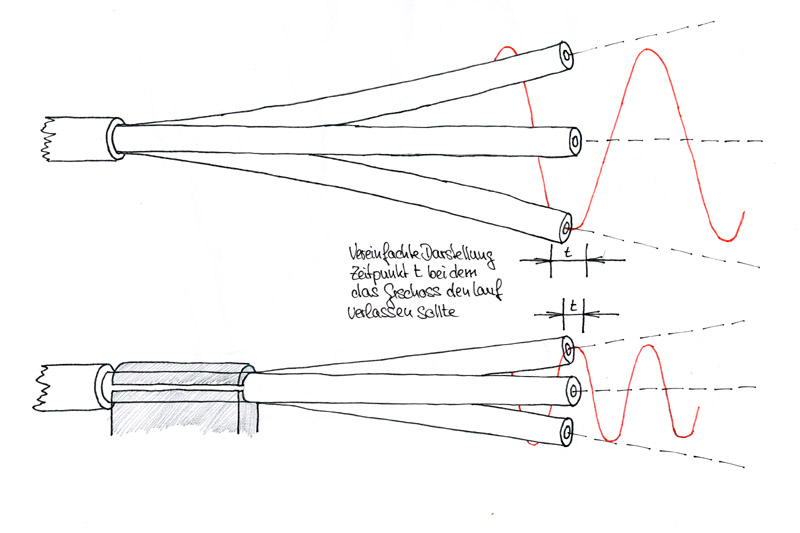 Vereinfachte Darstellung
Zeitpunkt t bei dem
das Geschoss den Lauf
verlassen sollte
t
t